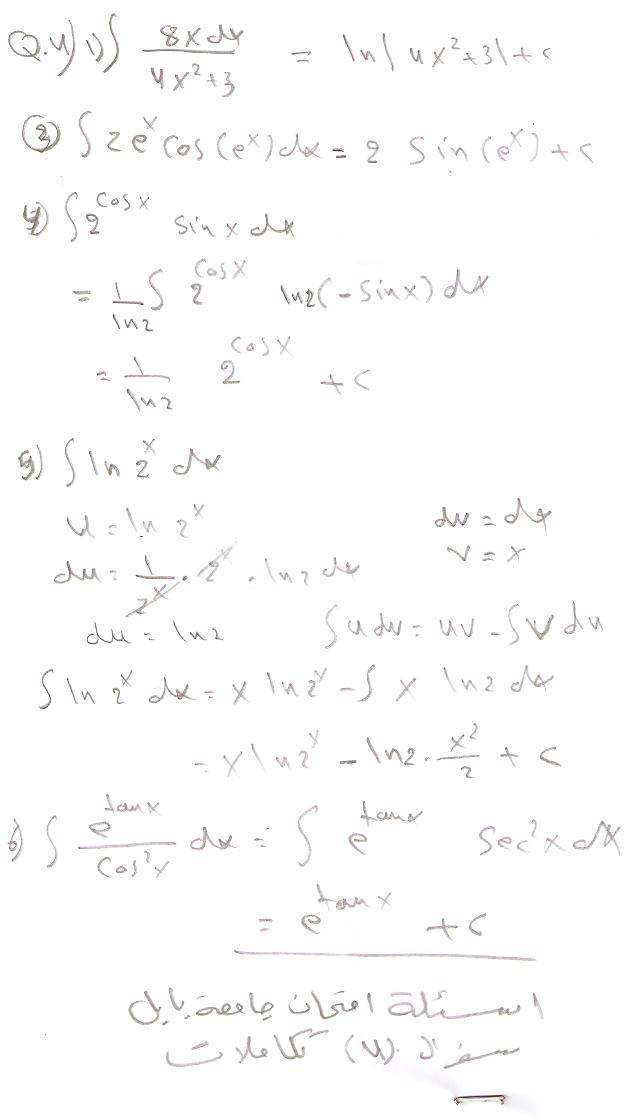 Q.4) 1) ∫ 8x dx / 4x²+3 = ln|4x²+3|+c
② ∫ 2e^x cos(e^x) dx = 2 sin(e^x)+c
4) ∫ 2^cosx sinx dx
= 1/ln2 ∫ 2^cosx ln2(-sinx) dx
= 1/ln2 2^cosx + c
5) ∫ ln 2^x dx
u = ln 2^x dv = dx
du = 1/2^x . 2^x . ln2 dx v = x
du = ln2 ∫u dv = uv - ∫v du
∫ ln 2^x dx = x ln2^x - ∫ x ln2 dx
= x ln2^x - ln2 . x²/2 + c
6) ∫ e^tanx / cos²x dx = ∫ e^tanx sec²x dx
= e^tanx + c
اسئلة امتحان جامعة بابل
سؤال (4) تكاملات